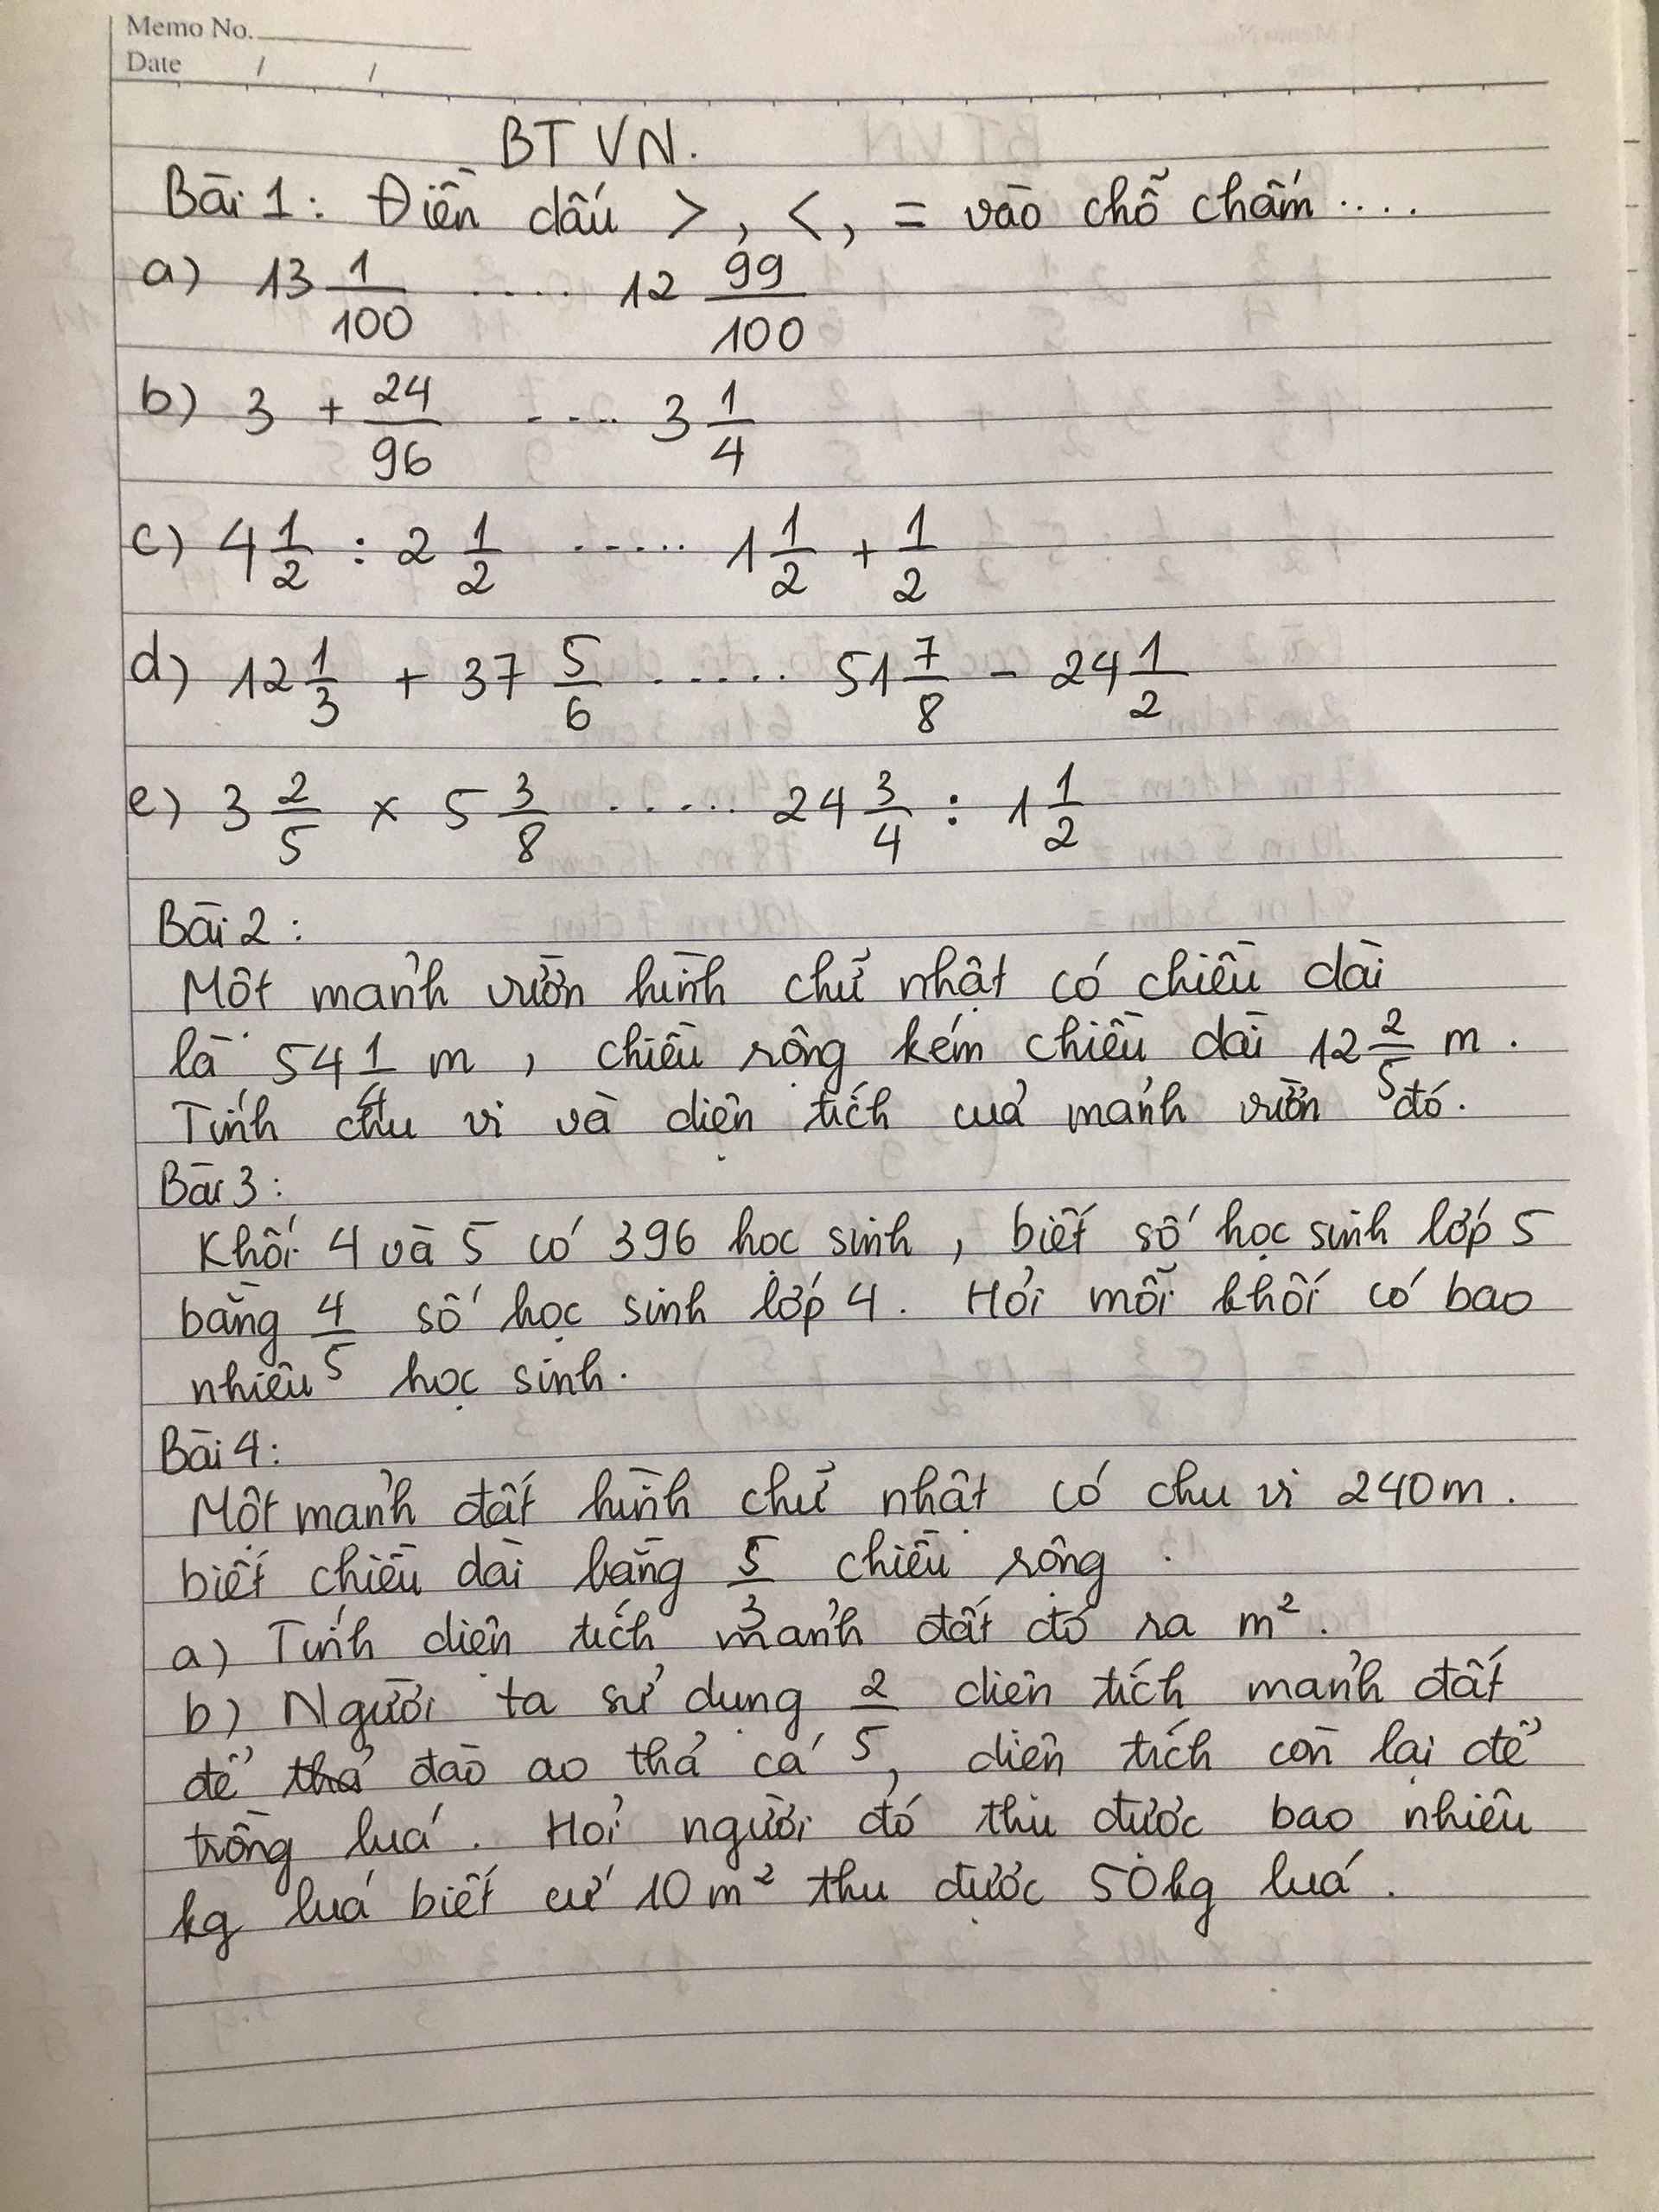 Memo No.
Date / /
BTVN.
Bài 1: Điền dấu >, <, = vào chỗ chấm ....
a) 13 1/100 ..... 12 99/100
b) 3 + 24/96 ..... 3 1/4
c) 4 1/2 : 2 1/2 ..... 1 1/2 + 1/2
d) 12 1/3 + 37 5/6 ..... 51 7/8 - 24 1/2
e) 3 2/5 x 5 3/8 ..... 24 3/4 : 1 1/2
Bài 2:
Một mảnh vườn hình chữ nhật có chiều dài
là 54 1/4 m, chiều rộng kém chiều dài 12 2/5 m.
Tính chu vi và diện tích của mảnh vườn đó.
Bài 3:
Khối 4 và 5 có 396 học sinh, biết số học sinh lớp 5
bằng 4/5 số học sinh lớp 4. Hỏi mỗi khối có bao
nhiêu học sinh.
Bài 4:
Một mảnh đất hình chữ nhật có chu vi 240m.
biết chiều dài bằng 5/3 chiều rộng.
a) Tính diện tích mảnh đất đó ra m².
b) Người ta sử dụng 2/5 diện tích mảnh đất
để thả đào ao thả cá, diện tích còn lại để
trồng lúa. Hỏi người đó thu được bao nhiêu
kg lúa biết cứ 10m² thu được 50kg lúa.